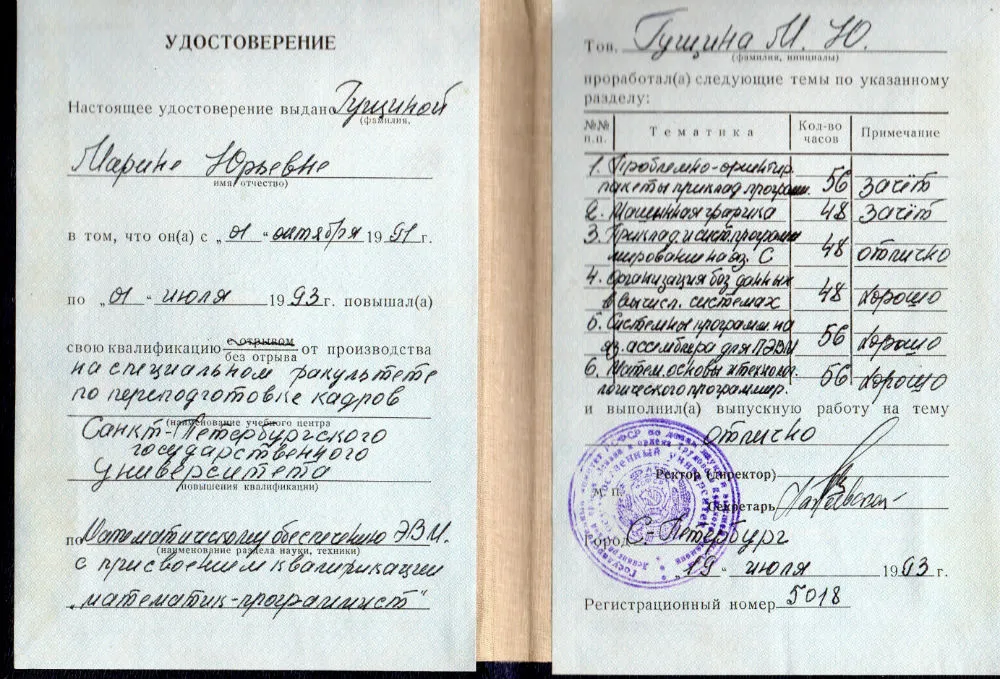 УДОСТОВЕРЕНИЕ
Настоящее удостоверение выдано Гущиной
(фамилия,
Марине Юрьевне
имя, отчество)
в том, что он(а) с „01“ октября 1991 г.
по „01“ июля 1993 г. повышал(а)
свою квалификацию с отрывом от производства
без отрыва
на специальном факультете
по переподготовке кадров
(наименование учебного центра
Санкт-Петербургского
государственного
университета
повышения квалификации)
по Математическому обеспечению ЭВМ.
(наименование раздела науки, техники)
с присвоением квалификации
„математик-программист“
Тов. Гущина М. Ю.
(фамилия, инициалы)
проработал(а) следующие темы по указанному
разделу:
№№ п.п. Тематика Кол-во часов Примечание
1. Проблемно-ориентир.
пакеты приклад. программ. 56 зачёт
2. Машинная графика 48 зачёт
3. Приклад. и сист. програм
мирование на яз. С 48 отлично
4. Организация баз данных
в вычисл. системах 48 хорошо
5. Системные программ. на
яз. ассемблера для ПЭВМ 56 хорошо
6. Матем. основы и технол
логического программир. 56 хорошо
и выполнил(а) выпускную работу на тему
отлично
Ректор (директор)
М. П.
Секретарь
Город С.-Петербург
„19“ июля 1993 г.
Регистрационный номер 5018